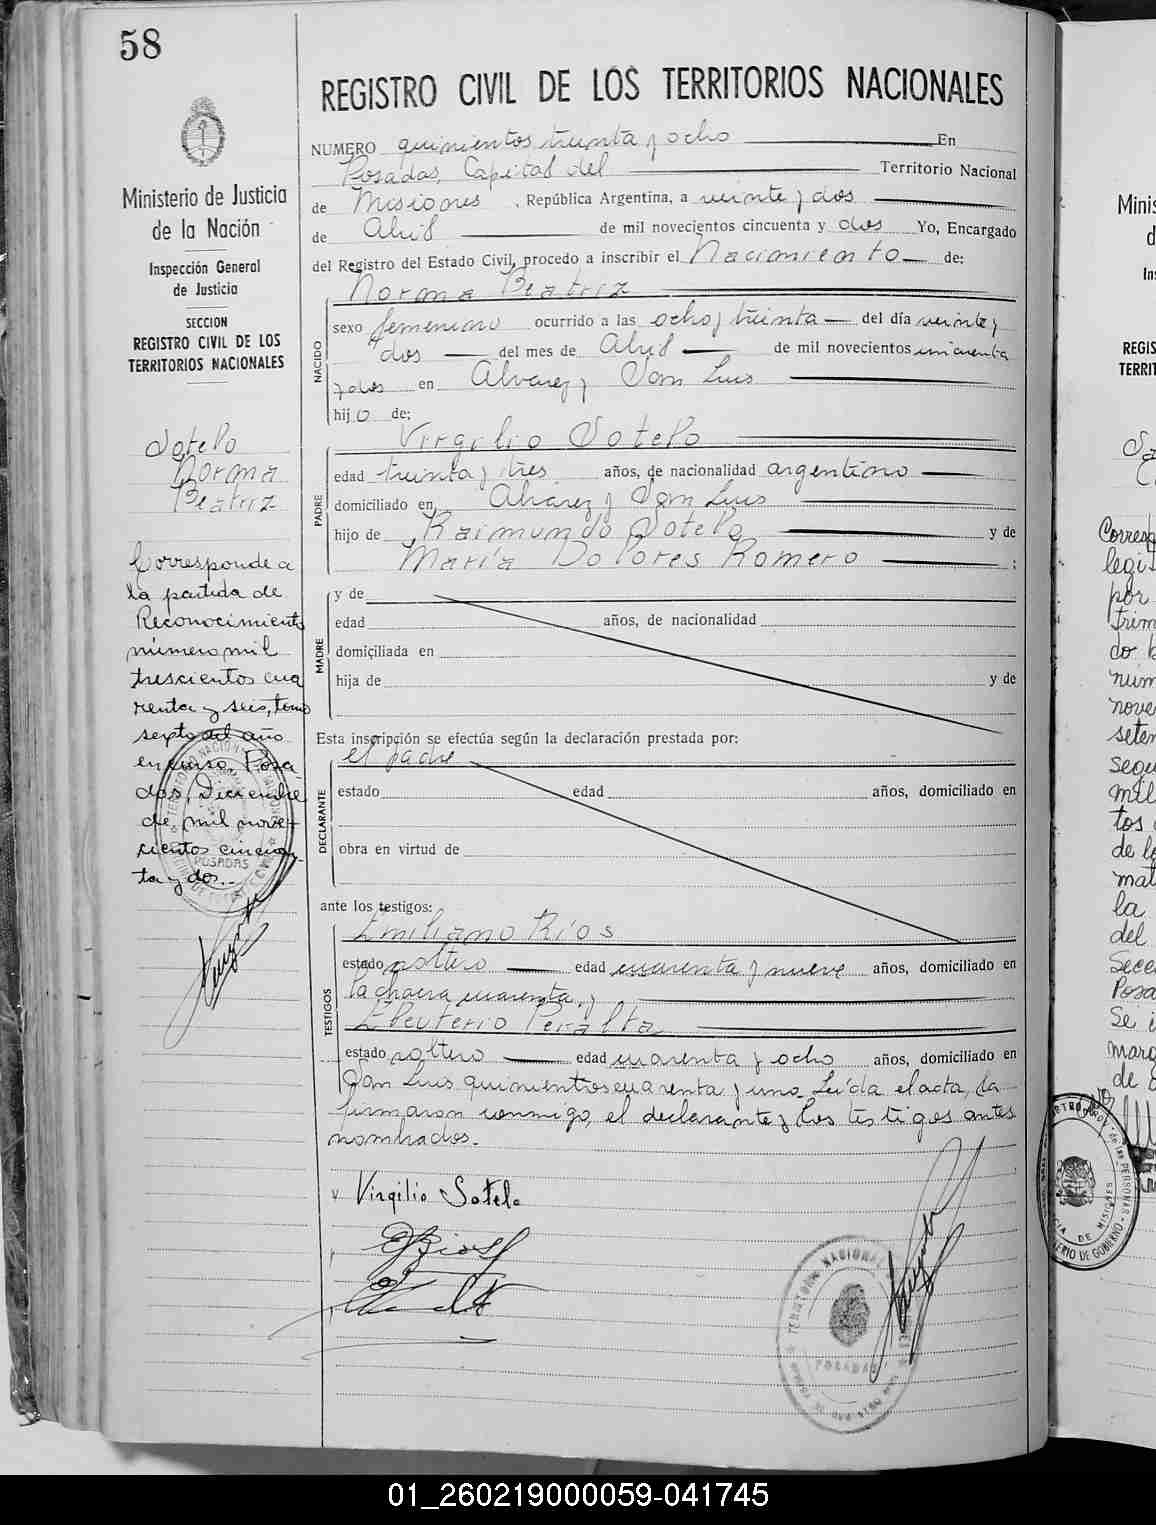 58
REGISTRO CIVIL DE LOS TERRITORIOS NACIONALES
Ministerio de Justicia
de la Nación
Inspección General
de Justicia
SECCION
REGISTRO CIVIL DE LOS
TERRITORIOS NACIONALES
Sotelo
Norma
Beatriz
Corresponde a
la partida de
Reconocimiento
número mil
trescientos cua
renta y seis, tomo
septo del año
en curso. Posa
das, Diciembre
de mil nove-
cientos cincuen
ta y dos.-
NUMERO quinientos treinta y ocho En
Posadas, Capital del Territorio Nacional
de Misiones , República Argentina, a veinte y dos
de Abril de mil novecientos cincuenta y dos Yo, Encargado
del Registro del Estado Civil, procedo a inscribir el Nacimiento de:
NACIDO
Norma Beatriz
sexo femenino ocurrido a las ocho y treinta del día veinte y
dos del mes de Abril de mil novecientos cincuenta
y dos en Alvarez y San Luis
hijo de:
PADRE
Virgilio Sotelo
edad treinta y tres años, de nacionalidad argentino
domiciliado en Alvarez y San Luis
hijo de Raimundo Sotelo y de
María Dolores Romero ;
MADRE
y de
edad años, de nacionalidad
domiciliada en
hija de y de
Esta inscripción se efectúa según la declaración prestada por:
DECLARANTE
el padre
estado edad años, domiciliado en
obra en virtud de
ante los testigos:
TESTIGOS
Emiliano Ríos
estado soltero edad cuarenta y nueve años, domiciliado en
la chacra cuarenta, y
Eleuterio Peralta
estado soltero edad cuarenta y ocho años, domiciliado en
San Luis quinientos cuarenta y uno. Leída el acta, la
firmaron conmigo, el declarante y los testigos antes
nombrados.-
Virgilio Sotelo
ERios
TERRITORIO NACIONAL
POSADAS
Minis
d
Ins
REGIS
TERRIT
Corresp
legi
por
trim
do
núm
nove
seten
segu
mil
tos
de lo
mat
la
del
Secc
Posa
Se i
marg
de
DE LAS PERSONAS
PROVINCIA DE MISIONES
MINISTERIO DE GOBIERNO
01_260219000059-041745